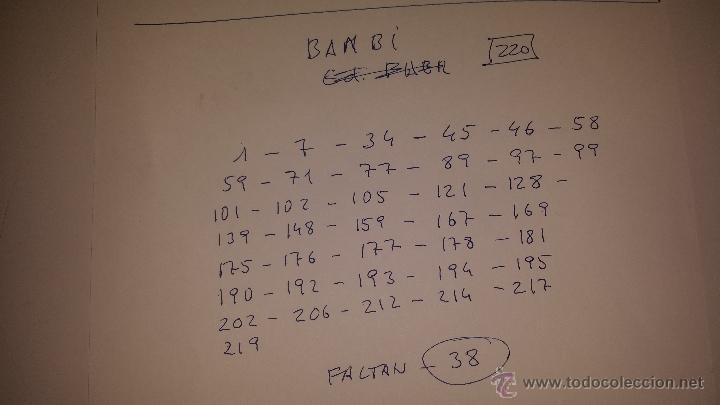 BAMBI
220
1 - 7 - 34 - 45 - 46 - 58
59 - 71 - 77 - 89 - 97 - 99
101 - 102 - 105 - 121 - 128 -
139 - 148 - 159 - 167 - 169
175 - 176 - 177 - 178 - 181
190 - 192 - 193 - 194 - 195
202 - 206 - 212 - 214 - 217
219
FALTAN - 38
© www.todocoleccion.net